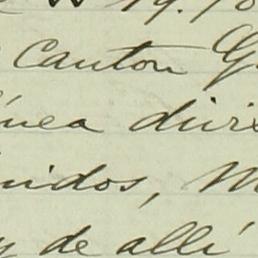 Canton
ínea divis
nidos, M
y de allí